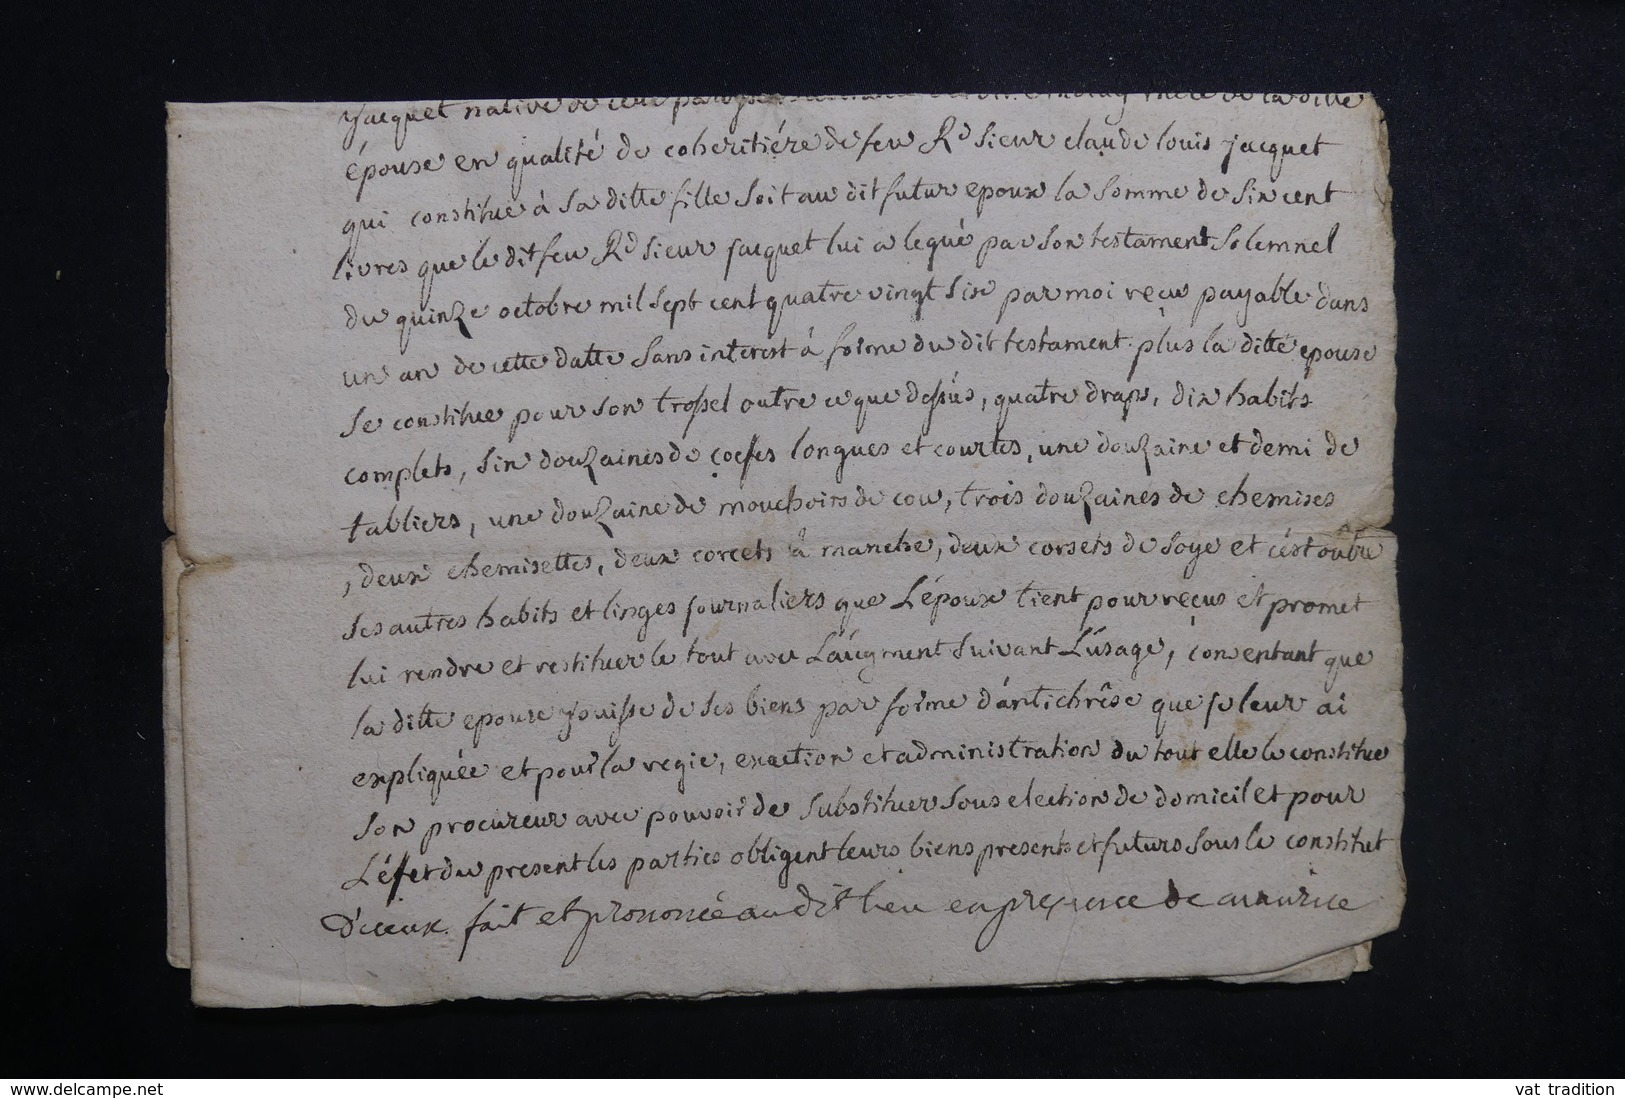 Jacquet native de cette paroisse mere de la ditte
épouse en qualité de coheritiére de feu Rd Sieur claude louis jacquet
qui constitue à Sa ditte fille Soit au dit futur epoux la Somme de Six cent
livres que le dit feu Rd Sieur jacquet lui a legué par Son testament Solemnel
du quinze octobre mil Sept cent quatre vingt Six par moi recu payable dans
un an de cette datte Sans interest à forme du dit testament. plus la ditte epouse
Se constitue pour Son trossel outre ce que dessús, quatre draps, dix habits
complets, Six douzaines de coefes longues et courtes, une douzaine et demi de
tabliers, une douzaine de mouchoirs de cou, trois douzaines de chemises
, deux chemisettes, deux corcets à manche, deux corsets de Soye et c'est oûtre
Ses autres habits et linges journaliers que L'époux tient pour reçus et promet
lui rendre et restituer le tout avec L'aúgment Suivant L'úsage, consentant que
la ditte epouse jouisse de Ses biens par forme d'ántichrêse que je leur ai
expliquée et pour la regie, exaction et administration du tout elle le constitue
Son procureur avec pouvoir de Substituer Sous election de domicil et pour
L'éfet du present les parties obligent leurs biens presents et futurs Sous le constitut
D'iceux. fait et prononcé au dit lieu en presence de maurice
www.delcampe.net
vat tradition